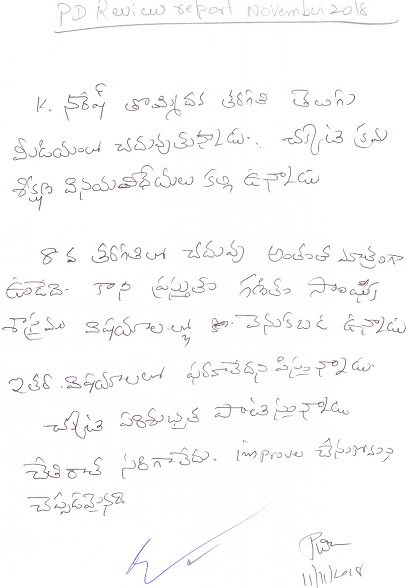 PD Review report November 2018
K. నరేష్ తొమ్మిదవ తరగతి తెలుగు
మీడియంలో చదువుతున్నాడు. చక్కటి క్రమ
శిక్షణ వినయవిధేయతలు కల్గి ఉన్నాడు
8 వ తరగతిలో చదువు అంతంత మాత్రంగా
ఉండేది. కాని ప్రస్తుతం గణితం సాంఘీక
శాస్త్రము విషయాలల్లో వెనుకబడి ఉన్నాడు
ఇతర విషయాలలో ఫరవాలేదనిపిస్తున్నాడు.
చక్కటి పరిశుభ్రత పాటిస్తున్నాడు
చేతిరాత సరిగాలేదు. improve చేసుకోమని
చెప్పడమైనది
11/11/2018